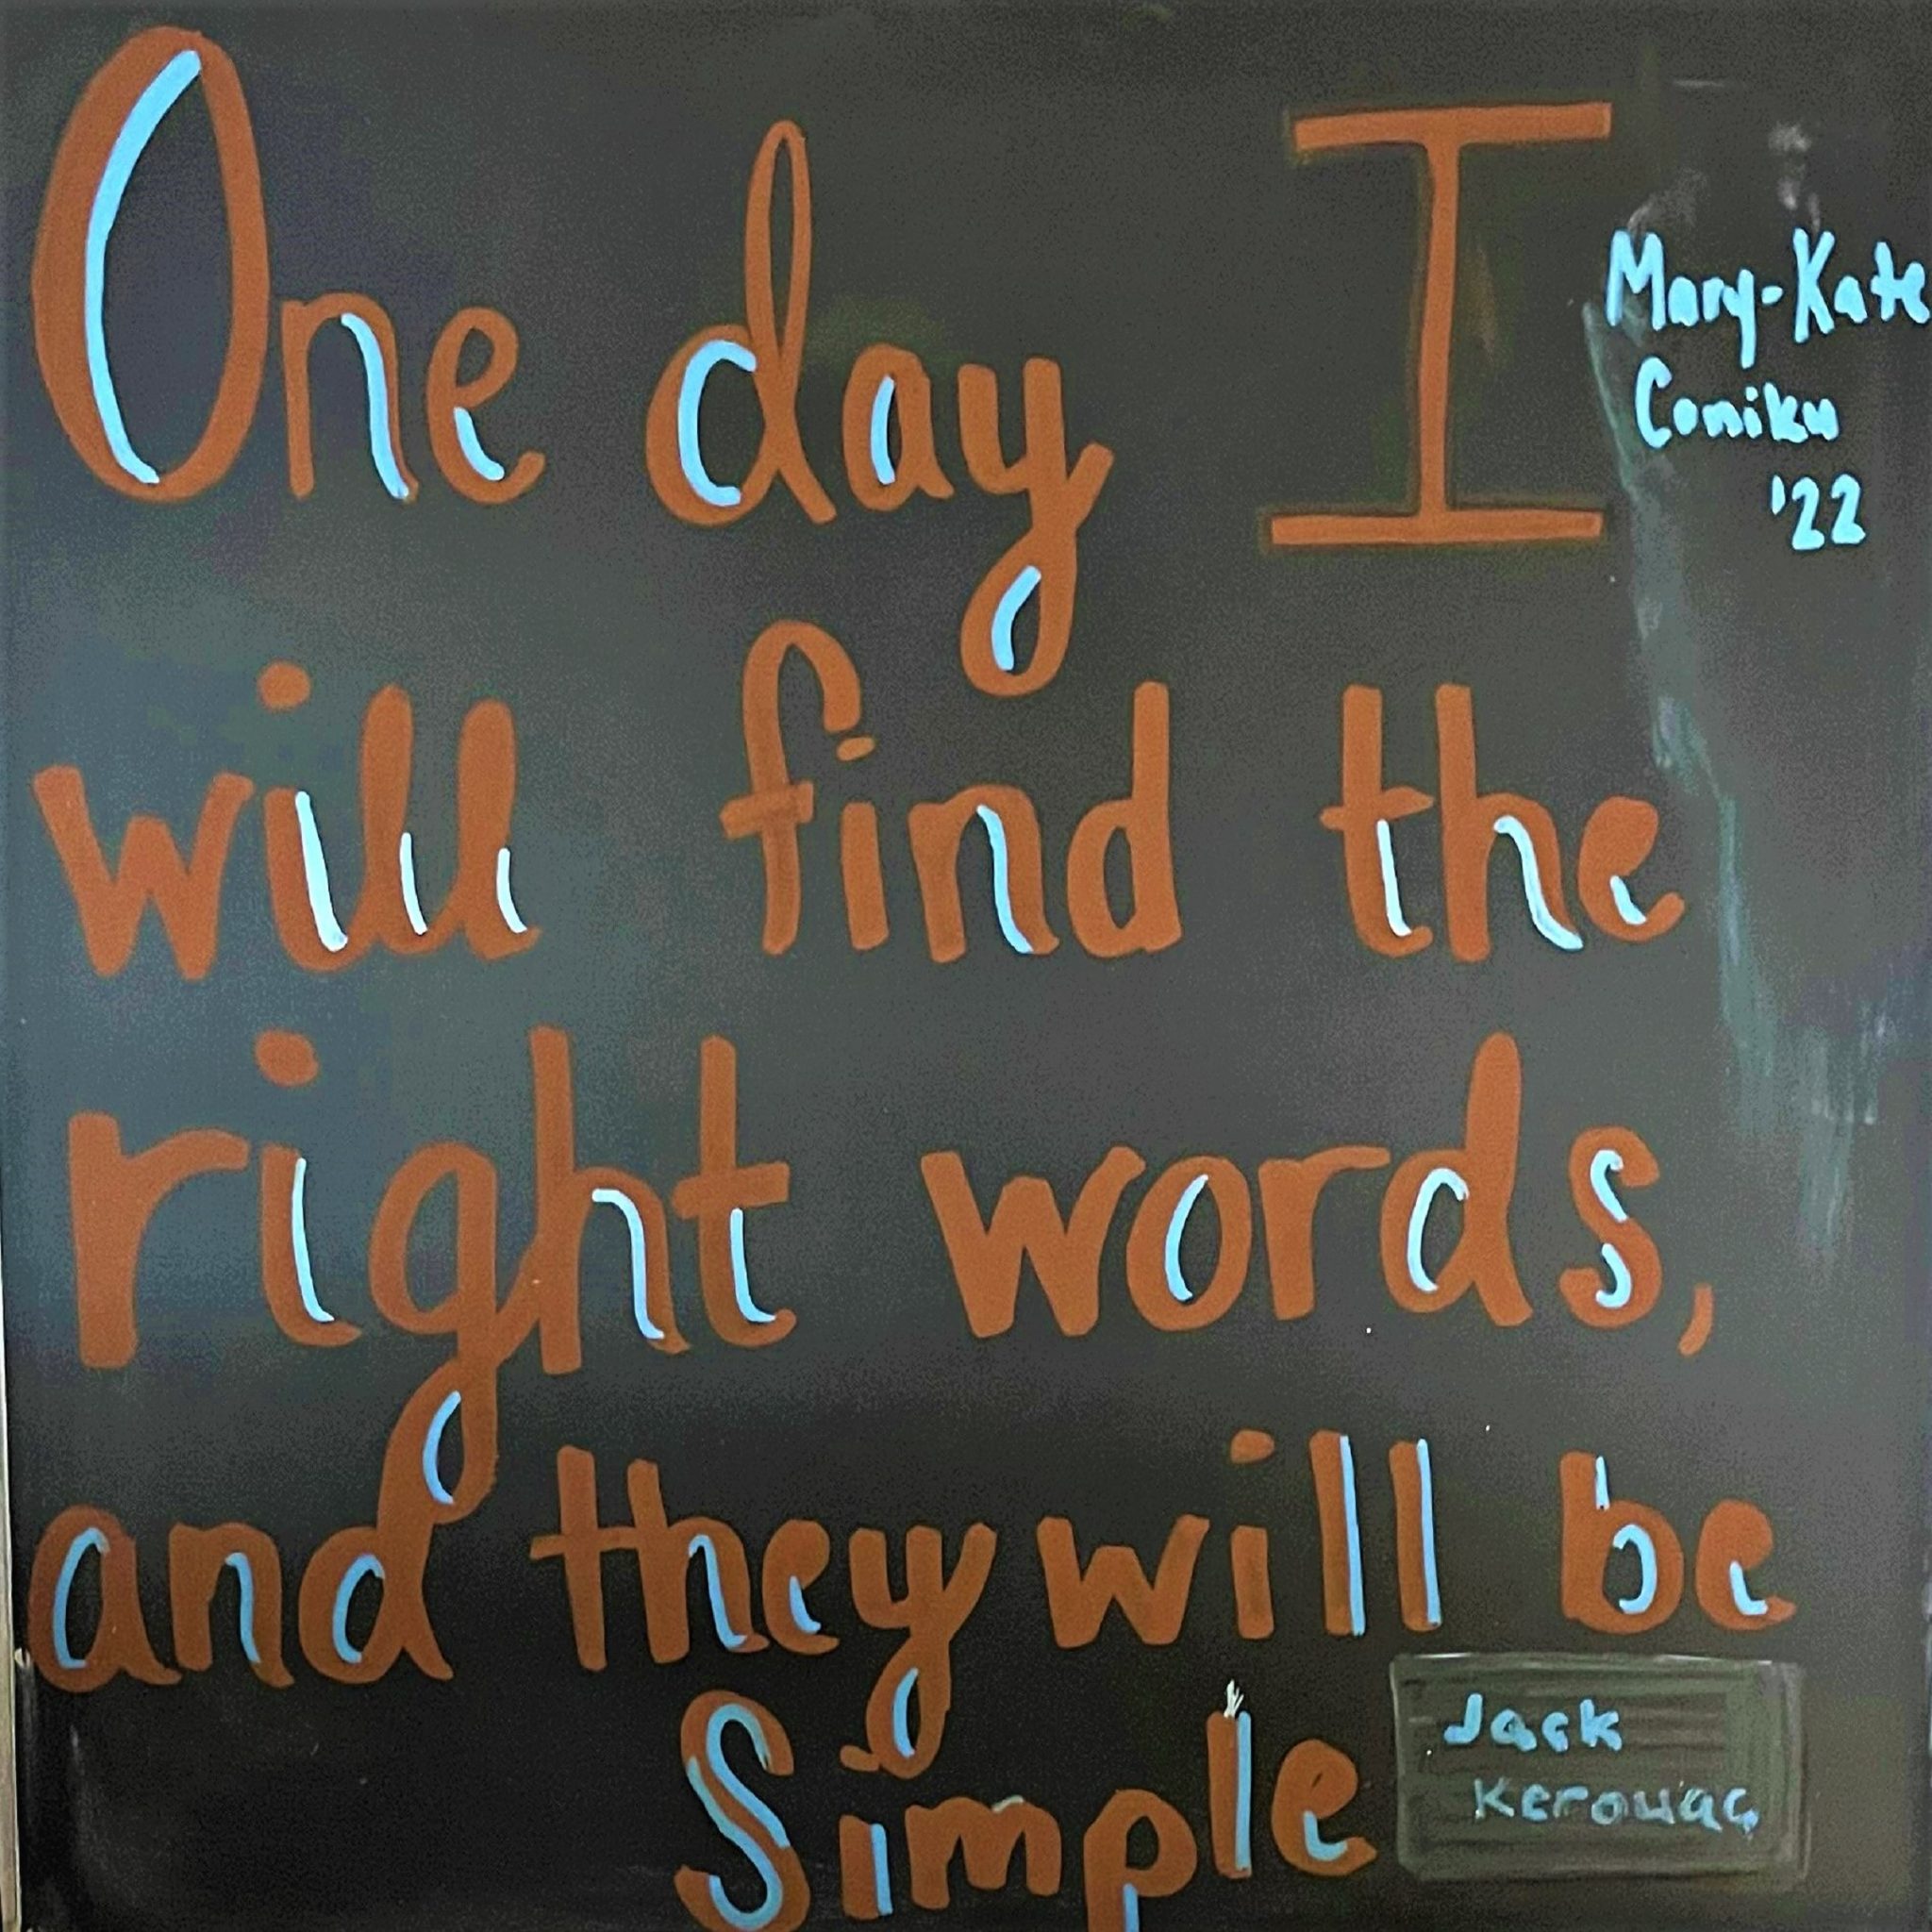 One day I
will find the
right words,
and they will be
Simple
Mary-Kate
Coniku
'22
Jack
Kerouac